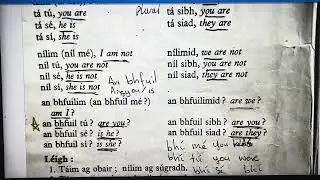 plural
tá tú, you are
tá sé, he is
tá sí, she is
tá sibh, you are
tá siad, they are
nílim (níl mé), I am not
níl tú, you are not
níl sé, he is not
níl sí, she is not
nílimid, we are not
níl sibh, you are not
níl siad, they are not
An bhfuil
an bhfuilim (an bhfuil mé?)
am I?
an bhfuil tú? are you?
an bhfuil sé? is he?
an bhfuil sí? is she?
an bhfuilimid? are we?
an bhfuil sibh? are you?
an bhfuil siad? are they?
bhí mé you
bhí tú you were
bhí sé bhí
Léigh:
1. Táim ag obair; nílim ag súgradh.